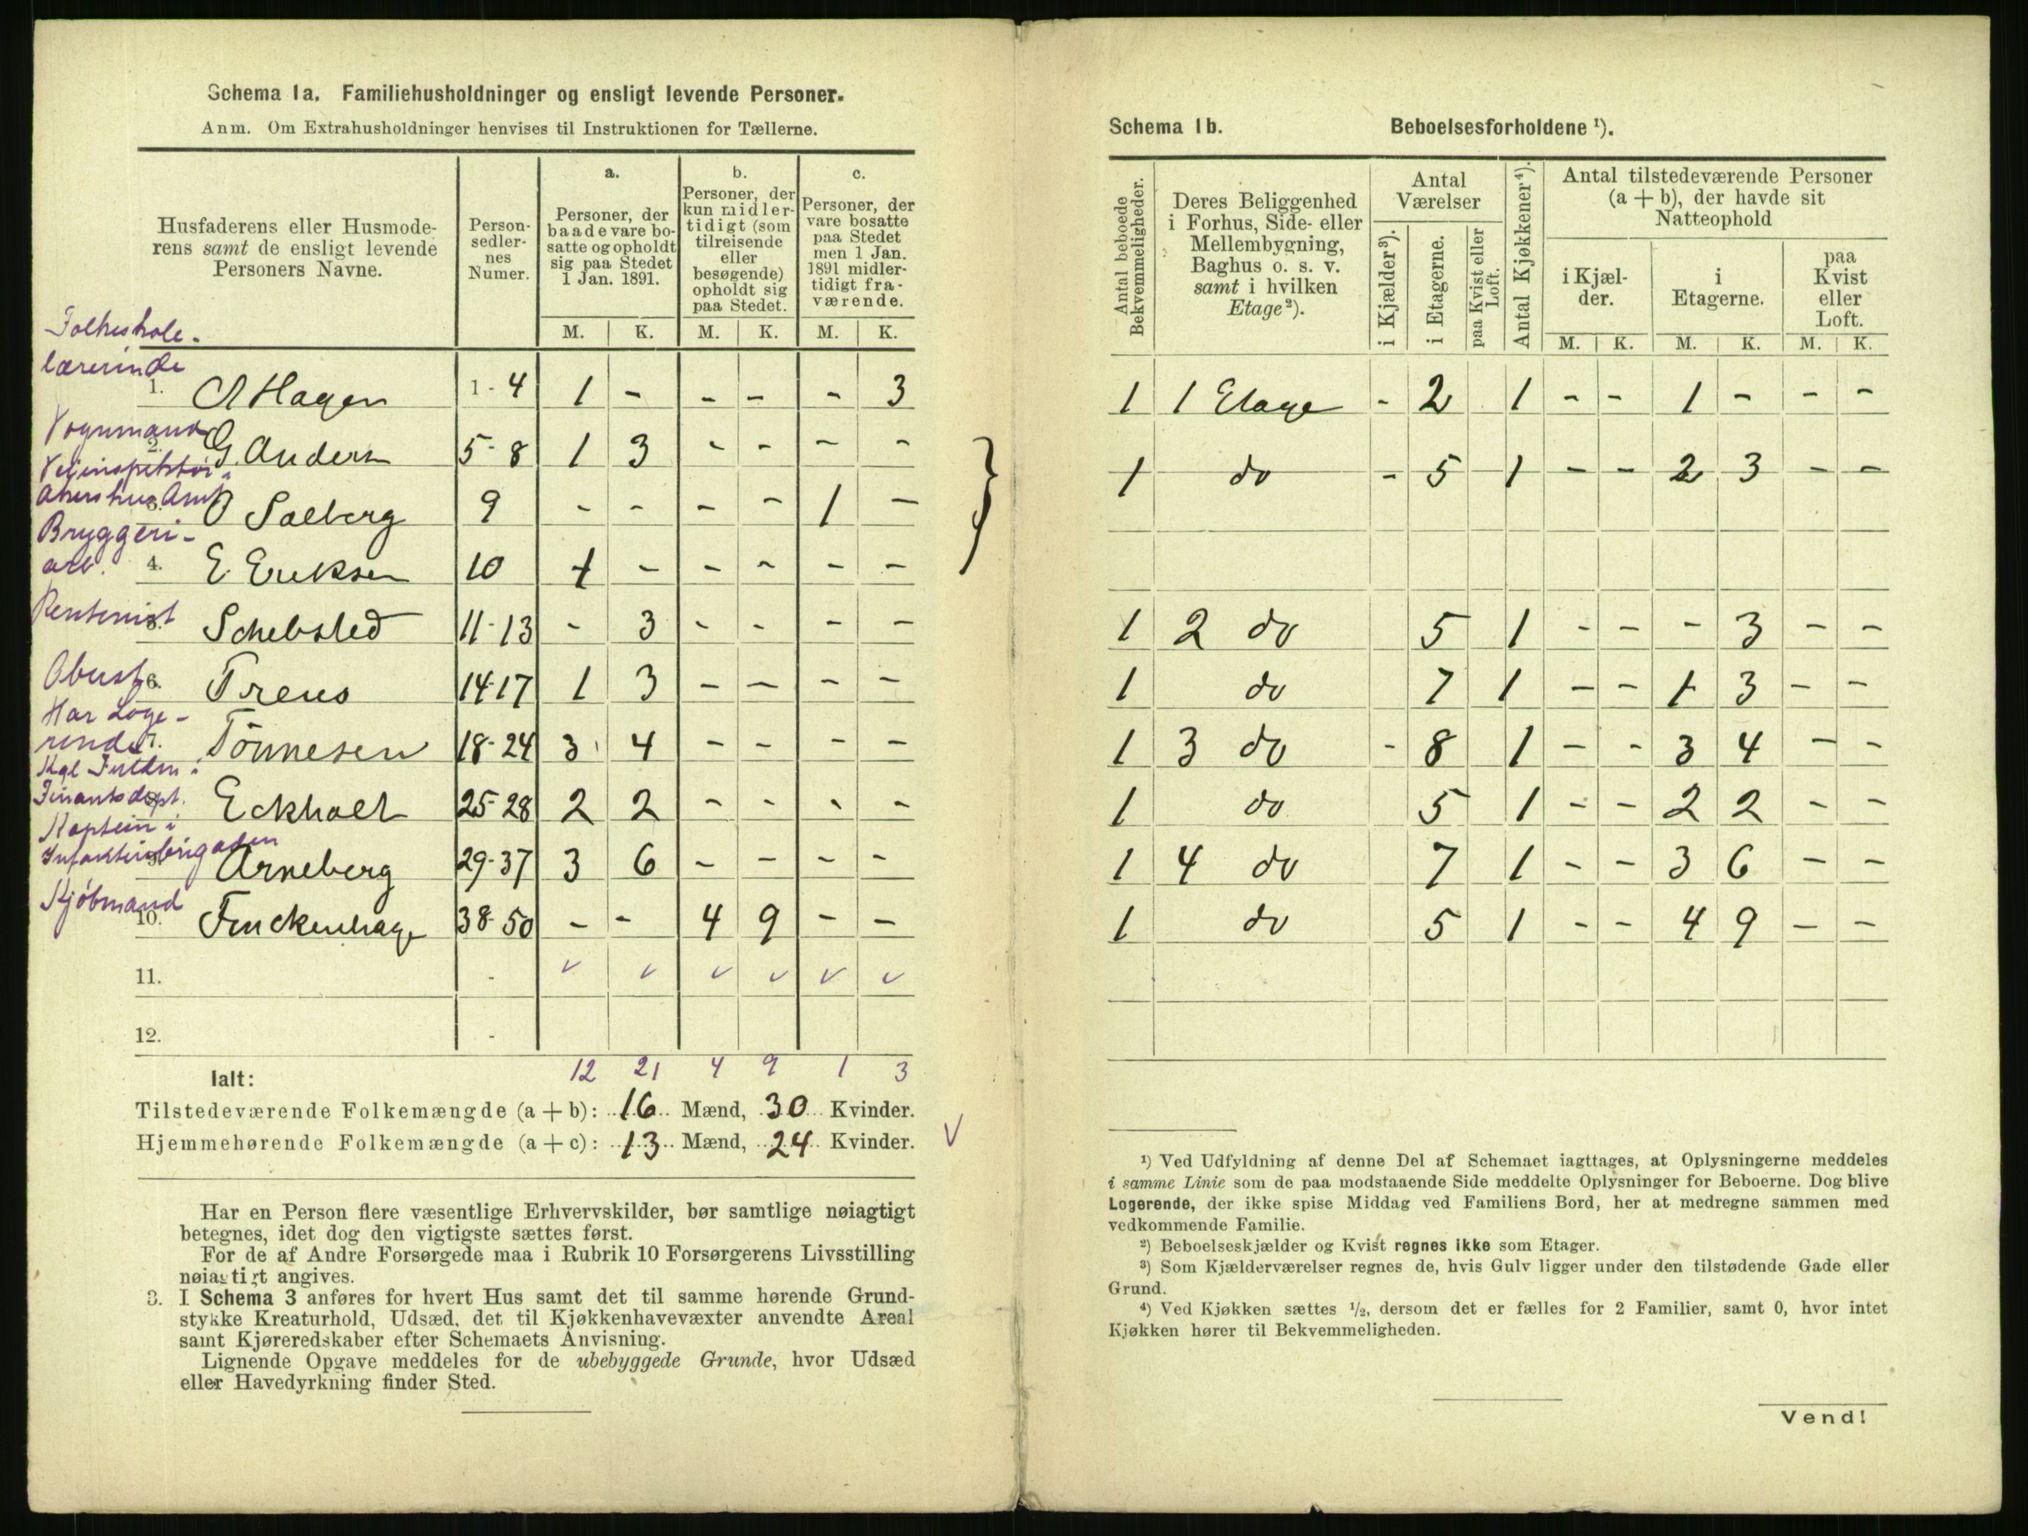 Schema 1a. Familiehusholdninger og ensligt levende Personer.
Anm. Om Extrahusholdninger henvises til Instruktionen for Tællerne.
Husfaderens eller Husmoderens samt de ensligt levende Personers Navne.
Personsedlernes Numer.
a. Personer, der baade vare bosatte og opholdt sig paa Stedet 1 Jan. 1891.
b. Personer, der kun midlertidigt (som tilreisende eller besøgende) opholdt sig paa Stedet.
c. Personer, der vare bosatte paa Stedet men 1 Jan. 1891 midlertidigt fraværende.
M. K. M. K. M. K.
Folkeskole-
lærerinde
1. A Hagen 1-4 1 - - - - 3
Vognmand
2. G. Anders 5-8 1 3 - - - -
Veiinspektør i
Akershus Amt
3. O Solberg 9 - - - - 1 -
Bryggeri-
arb.
4. E. Eriksen 10 1 - - - - -
Rentenist
5. Schebsted 11-13 - 3 - - - -
6. Treus 14-17 1 3 - - - -
Har Loge-
rende
7. Tönnesen 18-24 3 4 - - - -
Kgl Fuldm i
Finantsdept.
8. Eckholt 25-28 2 2 - - - -
Kaptein i
Infanteribrigaden
9. Arneberg 29-37 3 6 - - - -
Kjøbmand
10. Finckenhage 38-50 - - 4 9 - -
11. -
12. -
Ialt: 12 21 4 9 1 3
Tilstedeværende Folkemængde (a + b): 16 Mænd, 30 Kvinder.
Hjemmehørende Folkemængde (a + c): 13 Mænd, 24 Kvinder.
Har en Person flere væsentlige Erhvervskilder, bør samtlige nøiagtigt
betegnes, idet dog den vigtigste sættes først.
For de af Andre Forsørgede maa i Rubrik 10 Forsørgerens Livsstilling
nøiagtigt angives.
3. I Schema 3 anføres for hvert Hus samt det til samme hørende Grund-
stykke Kreaturhold, Udsæd, det til Kjøkkenhavevæxter anvendte Areal
samt Kjøreredskaber efter Schemaets Anvisning.
Lignende Opgave meddeles for de ubebyggede Grunde, hvor Udsæd
eller Havedyrkning finder Sted.
Schema 1b. Beboelsesforholdene ¹).
Antal beboede Bekvemmeligheder.
Deres Beliggenhed i Forhus, Side- eller Mellembygning, Baghus o. s. v. samt i hvilken Etage²).
Antal Værelser
i Kjælder³).
i Etagerne.
paa Kvist eller Loft.
Antal Kjøkkener⁴).
Antal tilstedeværende Personer (a + b), der havde sit Natteophold
i Kjælder.
i Etagerne.
paa Kvist eller Loft.
M. K. M. K. M. K.
1 1 Etage - 2 1 - - 1 - - -
1 do - 5 1 - - 2 3 - -
1 2 do 5 1 - - - 3 - -
1 do 7 1 - - 1 3 - -
1 3 do - 8 1 - - 3 4 - -
1 do 5 1 - - 2 2 - -
1 4 do 7 1 - - 3 6 - -
1 do 5 1 - - 4 9 - -
¹) Ved Udfyldning af denne Del af Schemaet iagttages, at Oplysningerne meddeles
i samme Linie som de paa modstaaende Side meddelte Oplysninger for Beboerne. Dog blive
Logerende, der ikke spise Middag ved Familiens Bord, her at medregne sammen med
vedkommende Familie.
²) Beboelseskjælder og Kvist regnes ikke som Etager.
³) Som Kjælderværelser regnes de, hvis Gulv ligger under den tilstødende Gade eller
Grund.
⁴) Ved Kjøkken sættes ½, dersom det er fælles for 2 Familier, samt 0, hvor intet
Kjøkken hører til Bekvemmeligheden.
Vend!